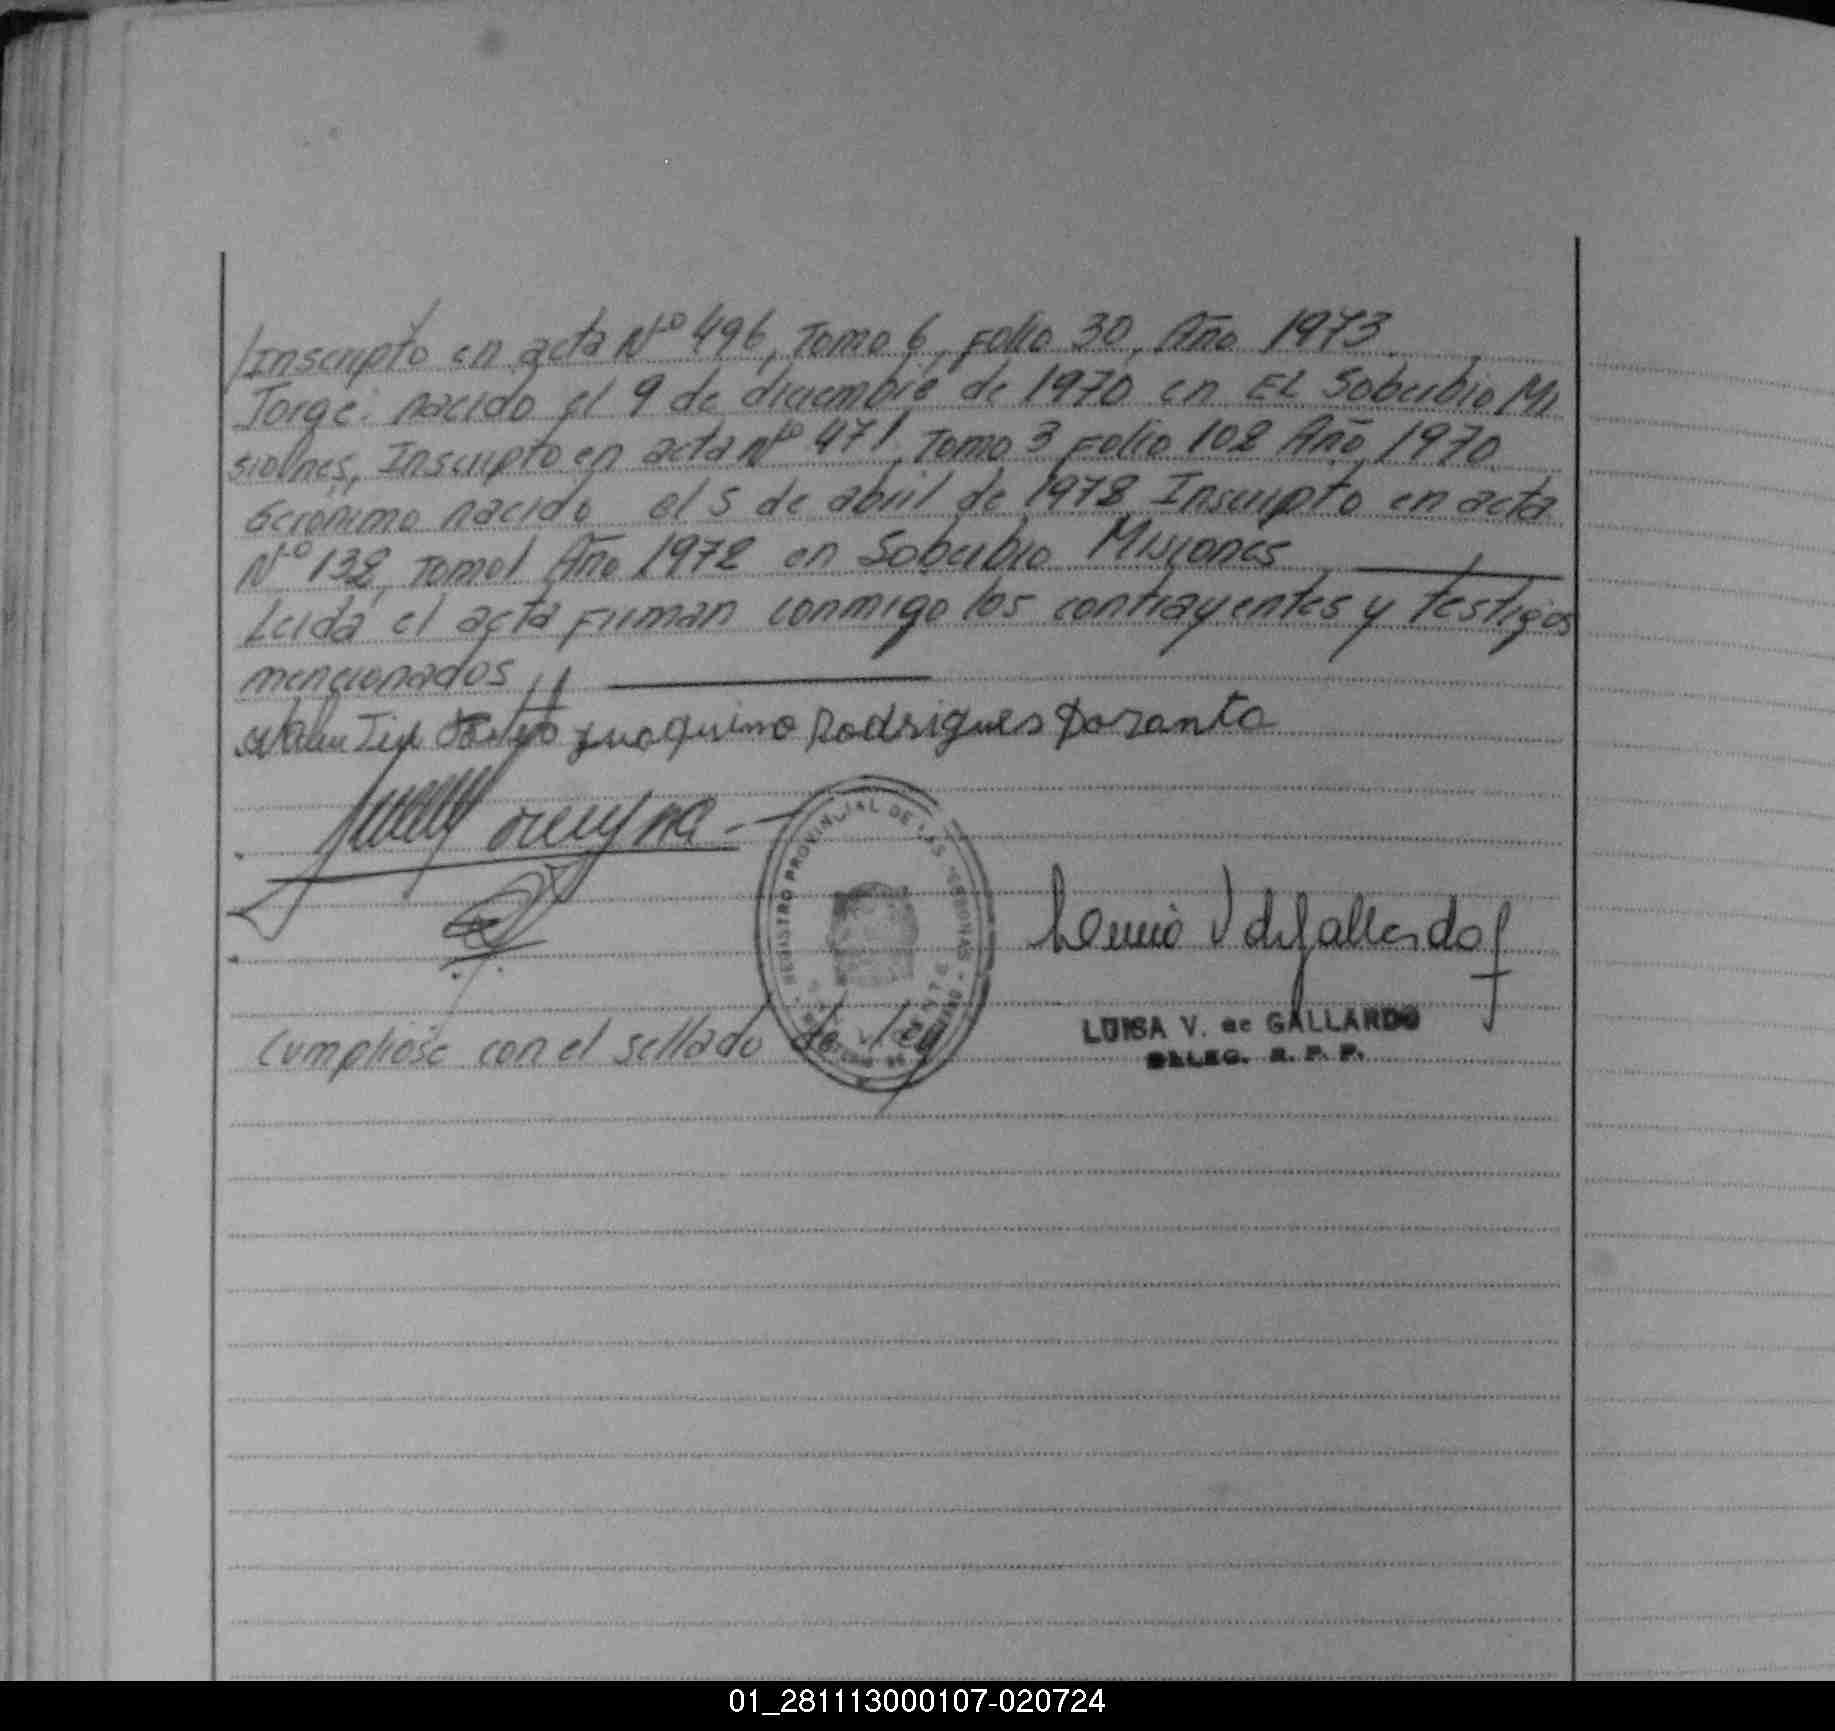 /Inscripto en acta Nº 496, Tomo 6, Folio 30, Año 1973.
Jorge: nacido el 9 de diciembre de 1970 en EL Soberbio Mi
siolnes, Inscripto en acta Nº 471, Tomo 3 Folio 102 Año 1970.
Gerónimo nacido el 5 de abril de 1972 Inscripto en acta
Nº 132, Tomo 1 Año 1972 en Soberbio Misiones
Leida el acta Firman conmigo los contrayentes y testigos
mencionados
Juaquino Rodrigues Doranta
REGISTRO PROVINCIAL DE LAS PERSONAS
V de Gallardo
LUISA V. de GALLARDO
DELEG. R. P. P.
Cumpliose con el sellado de Ley